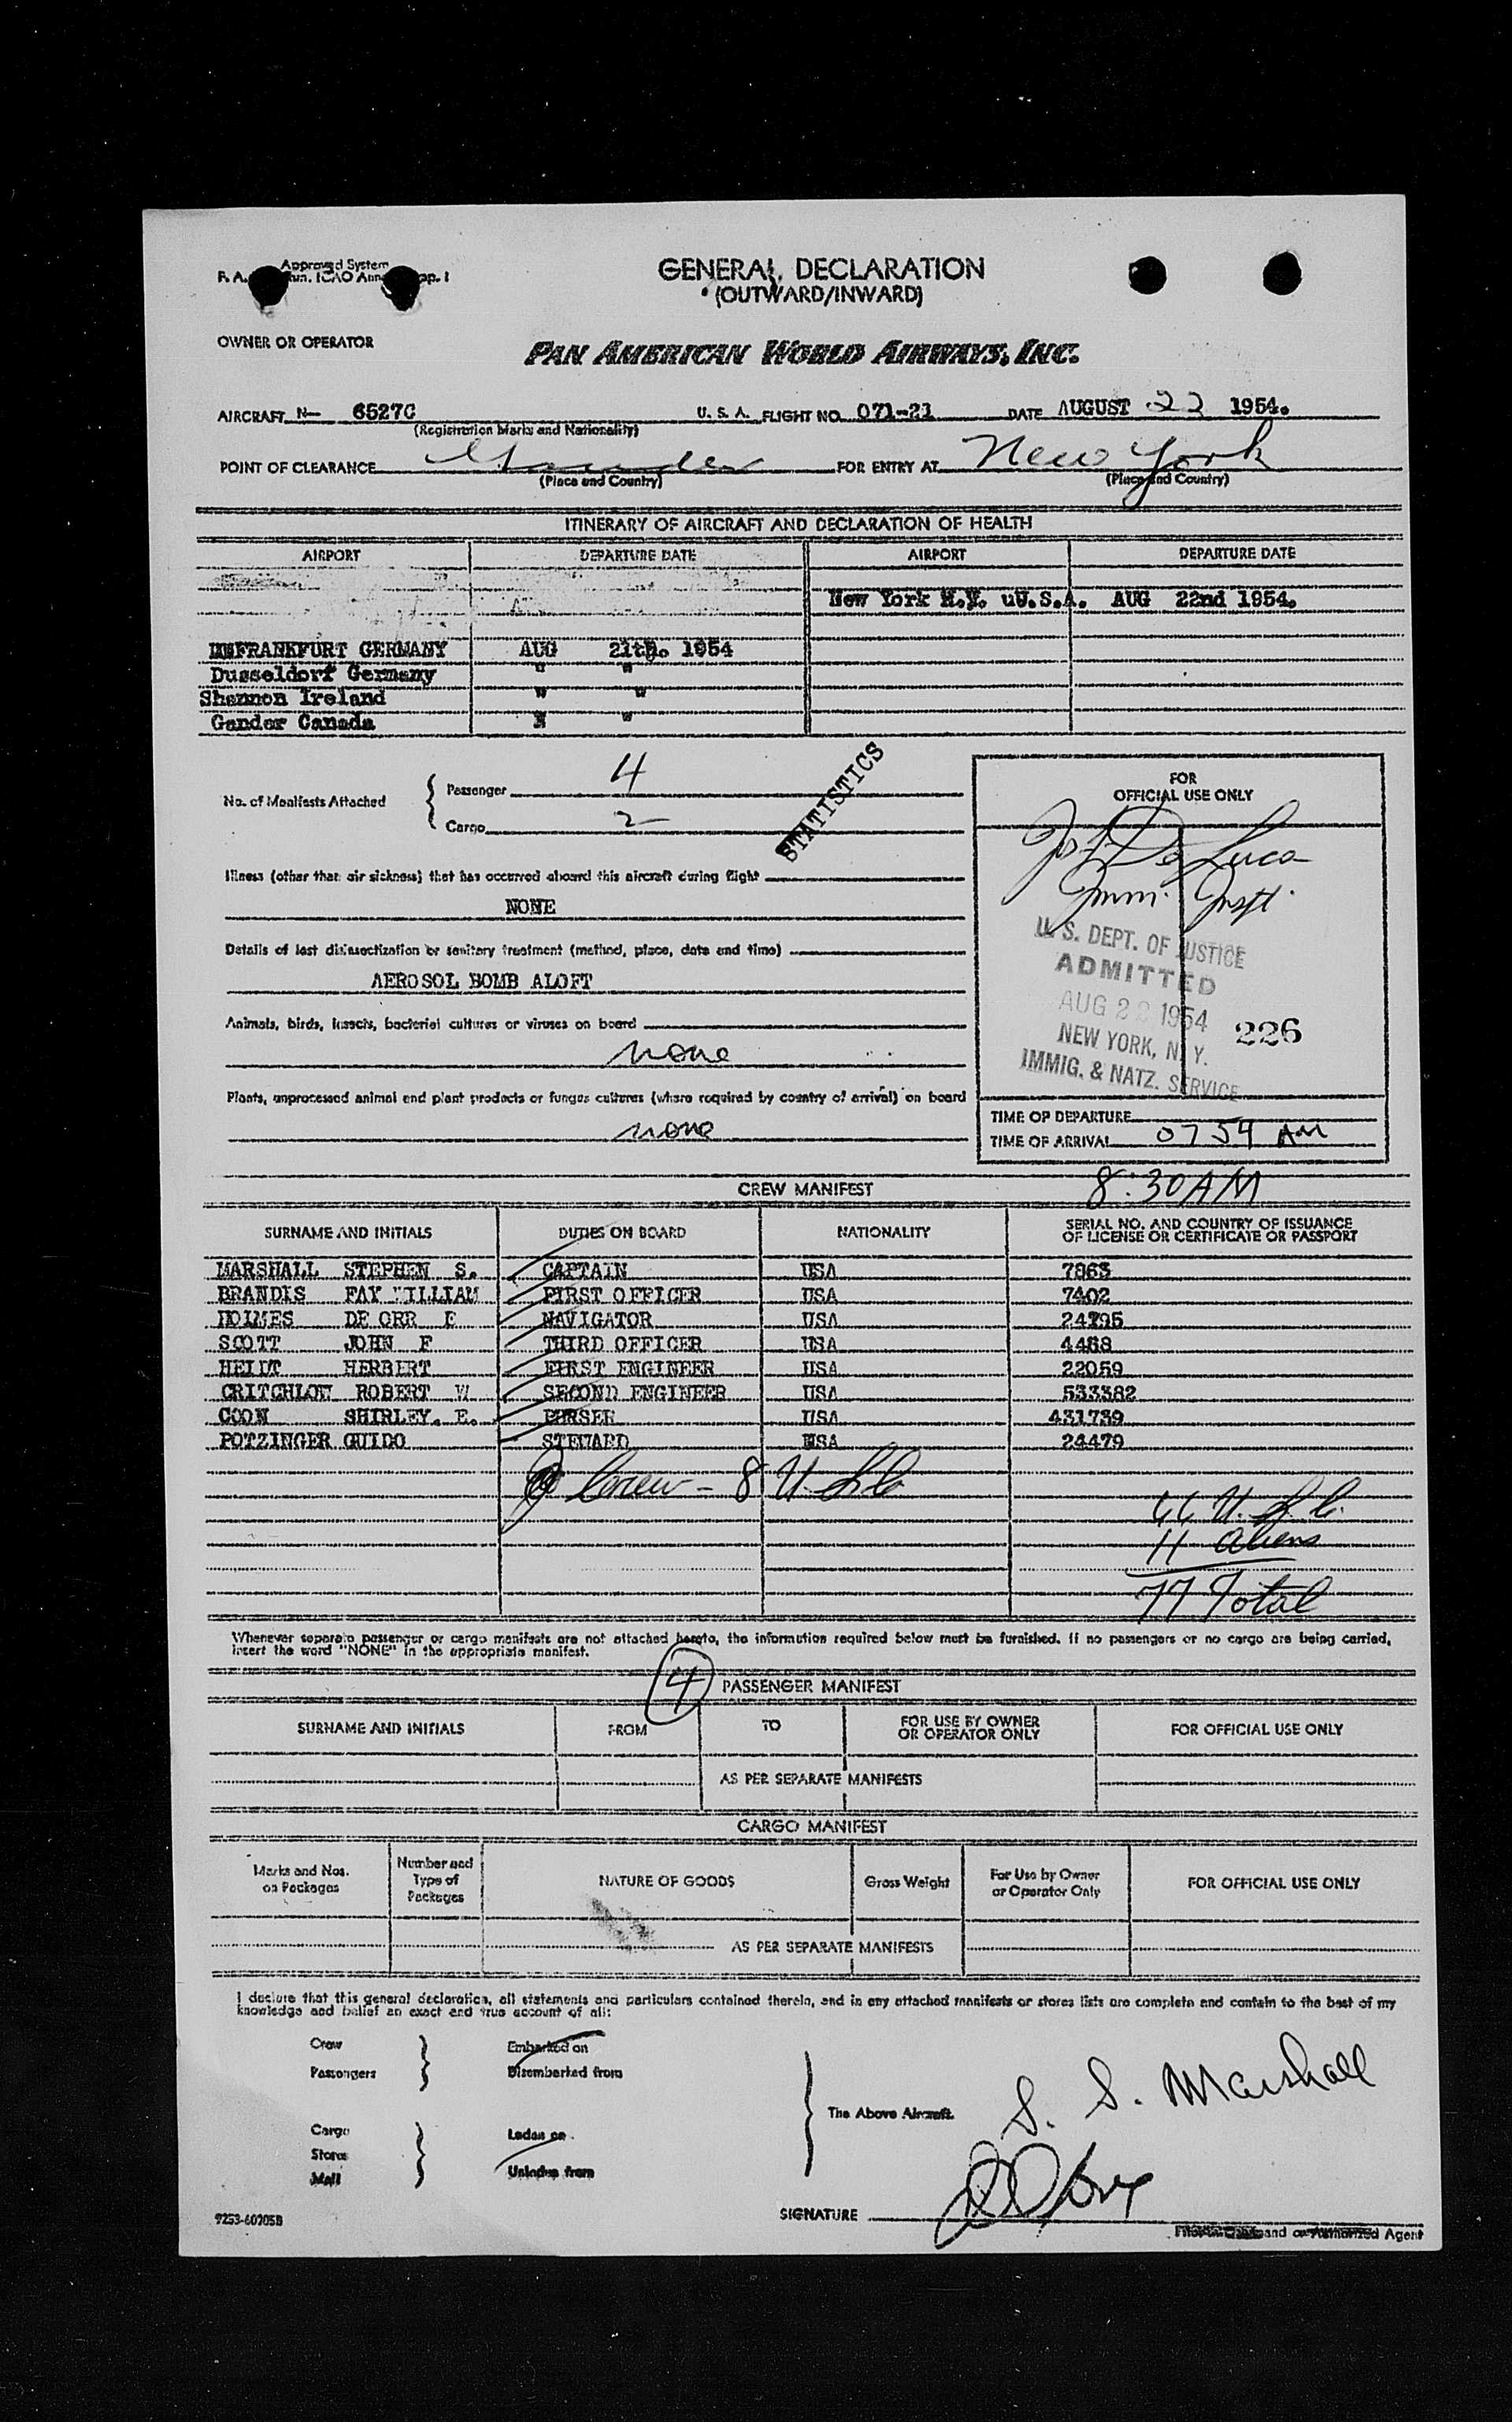 Approved System
GENERAL DECLARATION
(OUTWARD/INWARD)
OWNER OR OPERATOR
PAN AMERICAN WORLD AIRWAYS, INC.
AIRCRAFT N- 6527C U. S. A. FLIGHT NO. 071-21 DATE AUGUST 22 1954.
(Registration Marks and Nationality)
POINT OF CLEARANCE Gander FOR ENTRY AT New York
(Place and Country) (Place and Country)
ITINERARY OF AIRCRAFT AND DECLARATION OF HEALTH
AIRPORT DEPARTURE DATE AIRPORT DEPARTURE DATE
New York N.Y. uU.S.A. AUG 22nd 1954.
FRANKFURT GERMANY AUG 21th. 1954
Dusseldorf Germany " "
Shannon Ireland " "
Gander Canada " "
STATISTICS
No. of Manifests Attached
Passenger 4
Cargo 2
Illness (other than air sickness) that has occurred aboard this aircraft during flight
NONE
Details of last disinsectization or sanitary treatment (method, place, date and time)
AEROSOL BOMB ALOFT
Animals, birds, insects, bacterial cultures or viruses on board
none
Plants, unprocessed animal and plant products or fungus cultures (where required by country of arrival) on board
none
FOR
OFFICIAL USE ONLY
De Luca
Imm. Inspt.
U. S. DEPT. OF JUSTICE
ADMITTED
AUG 22 1954
226
NEW YORK, N. Y.
IMMIG. & NATZ. SERVICE
TIME OF DEPARTURE
TIME OF ARRIVAL 0754 AM
8:30 AM
CREW MANIFEST
SURNAME AND INITIALS DUTIES ON BOARD NATIONALITY SERIAL NO. AND COUNTRY OF ISSUANCE
OF LICENSE OR CERTIFICATE OR PASSPORT
MARSHALL STEPHEN S. CAPTAIN USA 7863
BRANDIS FAY WILLIAM FIRST OFFICER USA 7402
HOLMES DE ORR E NAVIGATOR USA
SCOTT JOHN F THIRD OFFICER USA 4468
HEIDT HERBERT FIRST ENGINEER USA 22059
CRITCHLOW ROBERT W SECOND ENGINEER USA 533382
COON SHIRLEY. E. PURSER USA 431739
POTZINGER GUIDO STEWARD USA 24479
Crew - 8 U.S.C.
66 U.S.C.
11 Aliens
77 Total
Whenever separate passenger or cargo manifests are not attached hereto, the information required below must be furnished. If no passengers or no cargo are being carried,
insert the word "NONE" in the appropriate manifest.
4 PASSENGER MANIFEST
SURNAME AND INITIALS FROM TO FOR USE BY OWNER
OR OPERATOR ONLY FOR OFFICIAL USE ONLY
AS PER SEPARATE MANIFESTS
CARGO MANIFEST
Marks and Nos.
on Packages
Number and
Type of
Packages
NATURE OF GOODS
Gross Weight
For Use by Owner
or Operator Only
FOR OFFICIAL USE ONLY
AS PER SEPARATE MANIFESTS
I declare that this general declaration, all statements and particulars contained therein, and in any attached manifests or stores lists are complete and contain to the best of my
knowledge and belief an exact and true account of all:
Crew
Passengers
Embarked on
Disembarked from
Cargo
Stores
Mail
Laden on
Unladen from
The Above Aircraft.
S. S. Marshall
SIGNATURE
and or Authorized Agent
9253-60205B